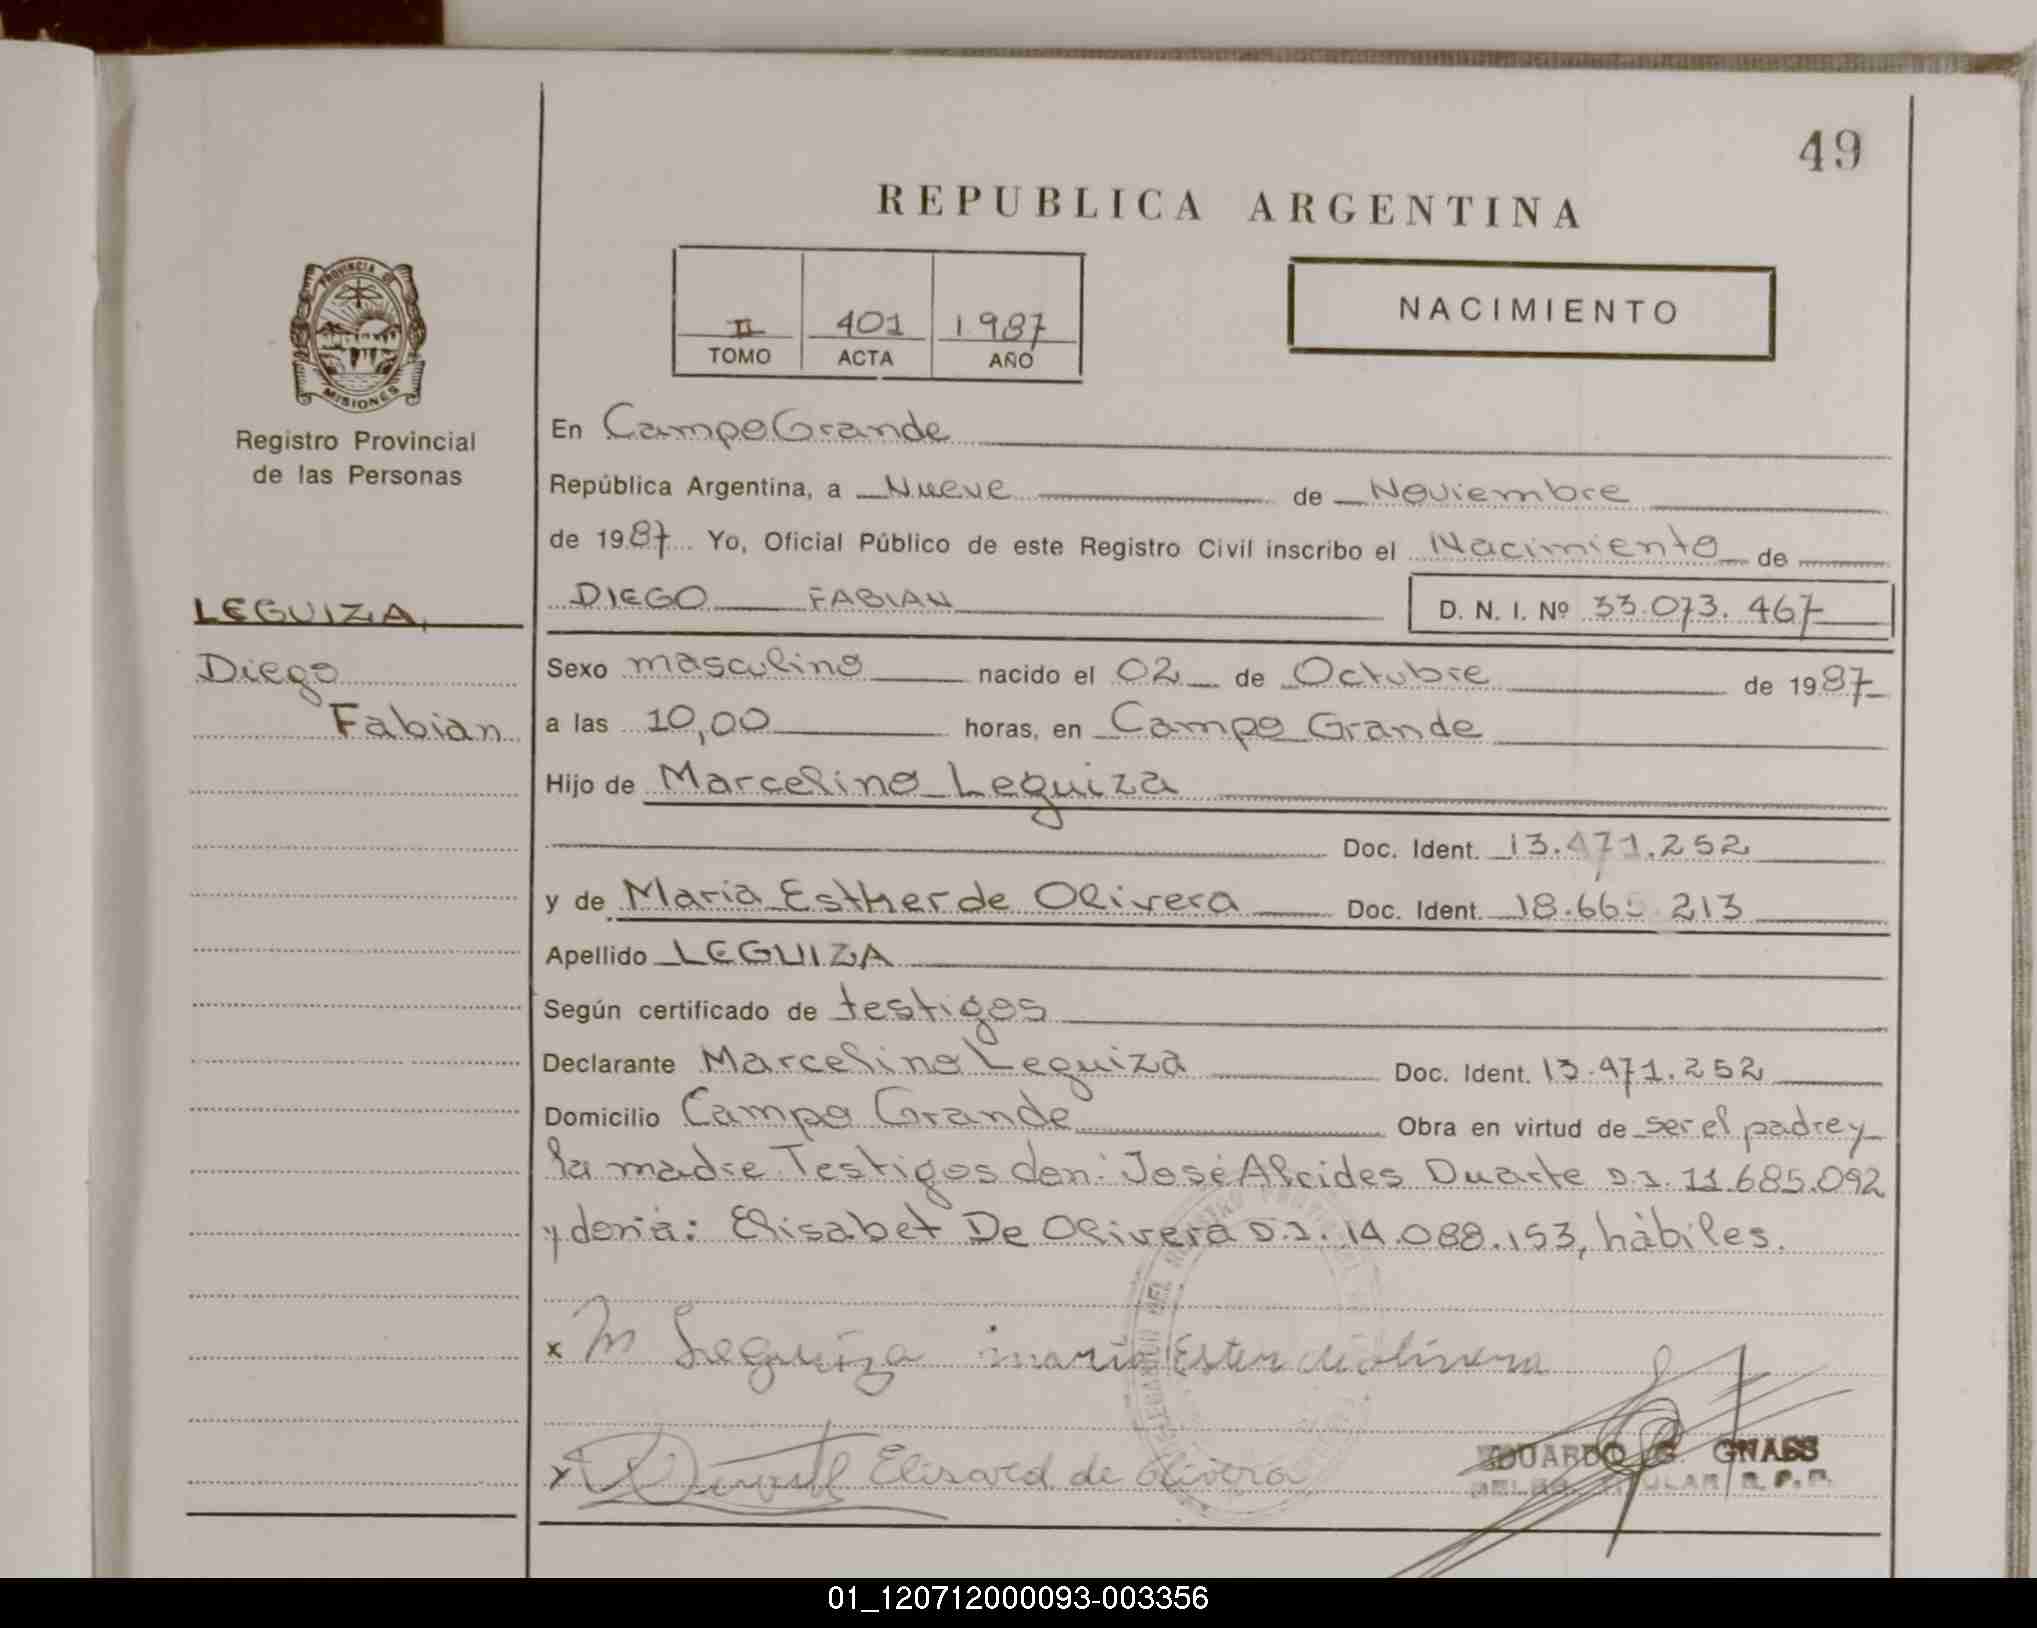 49
REPUBLICA ARGENTINA
II 401 1987
TOMO ACTA AÑO
NACIMIENTO
PROVINCIA DE
MISIONES
Registro Provincial
de las Personas
LEGUIZA,
Diego
Fabian
En Campo Grande
República Argentina, a Nueve de Noviembre
de 1987 Yo, Oficial Público de este Registro Civil inscribo el Nacimiento de
DIEGO FABIAN D. N. I. Nº 33.073.467
Sexo masculino nacido el 02 de Octubre de 1987
a las 10,00 horas, en Campo Grande
Hijo de Marcelino Leguiza
Doc. Ident. 13.471.252
y de Maria Esther de Olivera Doc. Ident. 213
Apellido LEGUIZA
Según certificado de testigos
Declarante Marcelino Leguiza Doc. Ident. 13.471.252
Domicilio Campo Grande Obra en virtud de ser el padre y
la madre Testigos don: José Alcides Duarte D.I. 11.685.092
y doña: Elisabet De Olivera D.I. 14.088.153, hábiles.
x M Leguiza maria Ester de olivera
x Elisaved de olivera
EDUARDO G. GNASS
R. P. P.
01_120712000093-003356